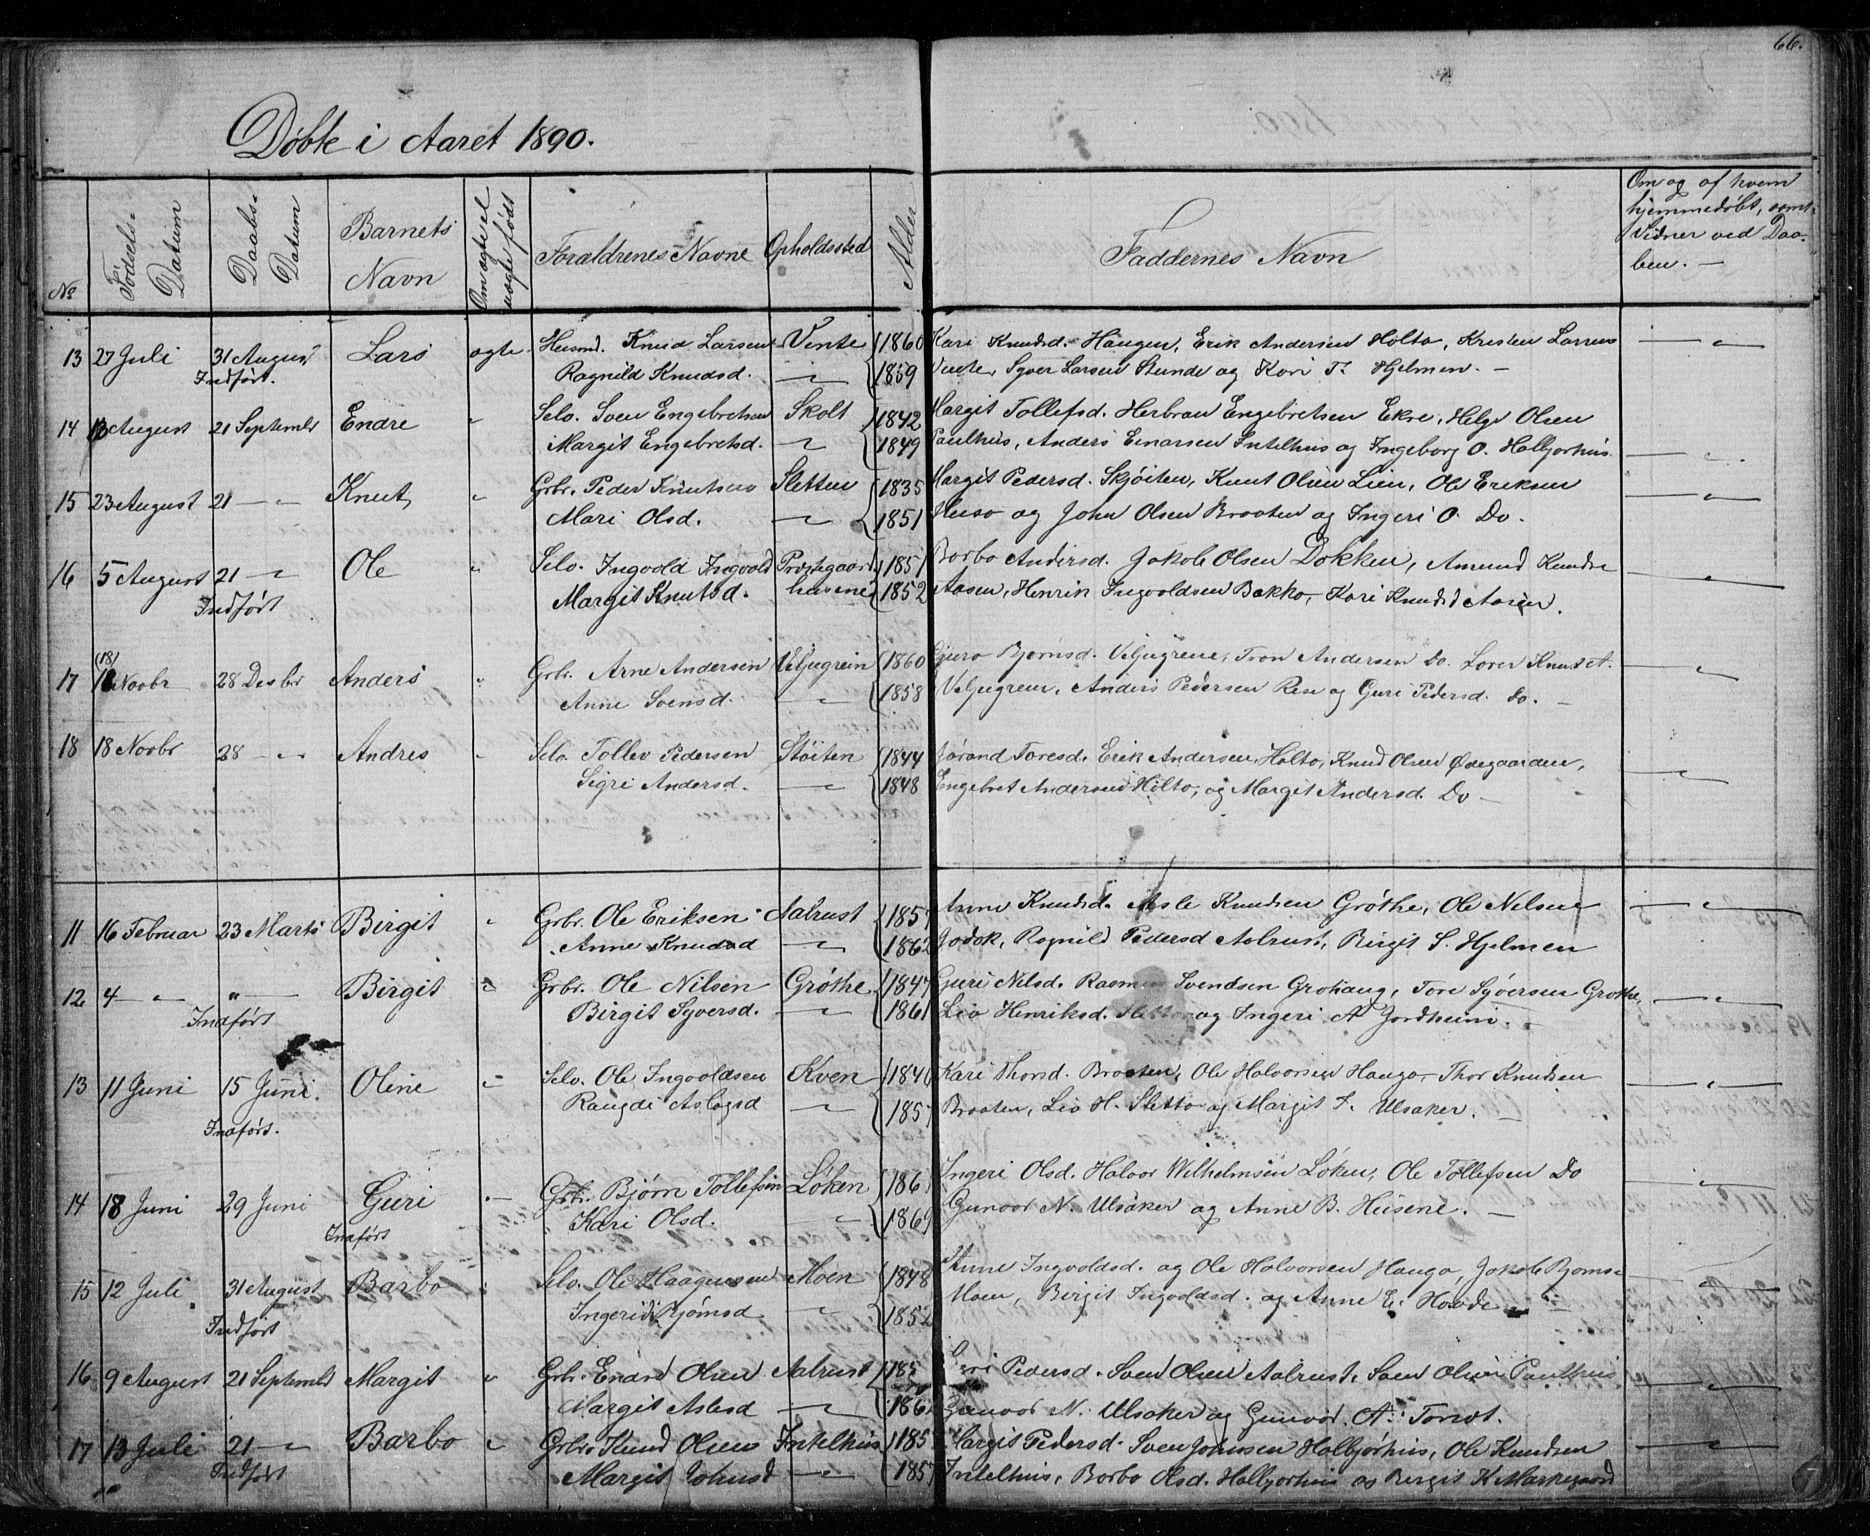 66.
Döbte i Aaret 1890.
No Födsels-Datum Daabs-Datum Barnets Navn Om ægte el. uægte födt Foraldrenes Navne Opholdssted Alder Faddernes Navn Om og af hvem hjemmedöbt, samt Vidner ved Daaben. —
13 27 Juli 31 August Lars ægte Husmd. Knud Larsen Vinte 1860 Kari Knudsd. Haugen, Erik Andersen Holto, Kristen Larsens — " —
Indfört. Ragnild Knudsd. — " — 1859 Vinte, Syver Larsen Stunde og Kari T. Hjelmen. —
14 August 21 Septembr Endre " Selv. Sven Engebretsen Skolt 1842 Margit Tollefsd. Herbran Engebretsen Ekre, Helge Olsen
Margit Engebretsd. — " — 1849 Paulhus, Anders Einarsen Intelhus og Ingeborg O. Halbjorhus. — " —
15 23 August 21 — " — Knut " Grbr. Peder Knutsen Sletten 1835 Margit Pedersd. Skjöiten, Knut Olsen Lien, Ole Eriksen — " —
Mari Olsd. — " — 1851 Huso og John Olsen Braaten og Ingeri O. Do.
16 5 August 21 — " — Ole " Selv. Ingvold Ingvold Præstegaard 1851 Barbo Andersd. Jakob Olsen Dokken, Amund Knudse — " —
Indfört Margit Knutsd. husene 1852 Aasen, Henrik Ingvoldsen Bakko, Kari Knudsd Aasen.
(18)
17 Novbr 28 Desbr Anders " Grbr. Arne Andersen Veljugrein 1860 Gjuro Bjornsd. Veljugrene, Tron Andersen Do. Knud A. — " —
Anne Svensd. — " — 1858 Veljugrein, Anders Pedersen Rese og Guri Pedersd. Do. —
18 18 Novbr 28 — " — Andres " Selv. Tollev Pedersen Stöiten 1844 Jörand Toresd. Erik Andersen Holto, Knud Olsen Ödegaarden, — " —
Sigri Andersd. — " — 1848 Engebret Andersen Holto, og Margit Andersd. Do —
11 16 Februar 23 Marts Birgit " Grbr. Ole Eriksen Aalrust 185 Anne Knudsd. Asle Knudsen Gröthe, Ole Nilsen — " —
Anne Knudsd — " — 1862 Jodok, Ragnild Pedersd Aalrust, Birgit S. Hjelmen
12 4 — " — " — Birgit " Grbr. Ole Nilsen Gröthe 1847 Guri Nilsd. Rasmus Svendsen Grohaug, Tore Syversen Grothe, — " —
Indfört Birgit Syversd. — " — 1861 Liv Henriksd. Sletto og Ingeri A Jordheim.
13 11 Juni 15 Juni. Oline " Selv. Ole Ingvoldsen Kven 184 Kari Thorsd. Braaten, Ole Halvorsen Haugo, Thor Knudsen — " —
Indfört. Raugdi Aslagsd — " — 185 Braaten, Liv H. Sletto og Margit T. Ulsaker. —
14 18 Juni 29 Juni Guri " Grbr. Bjørn Tollefsen Löken 186 Ingeri Olsd. Halvor Wilhelmsen Löken, Ole Tollefsen Do — " —
Indfört Kari Olsd. — " — 1869 Gunvor N. Ulsaker og Anne B. Husene. —
15 12 Juli 31 August Barbo " Selv. Ole Haagensen Moen 1848 Anne Ingvoldsd. og Ole Halvorsen Haugo, Jakob Bjorns- — " —
Indfört Ingerid Bjornsd — " — 1852 Moen, Birgit Ingvoldsd. og Anne E. Hovde —
16 9 August 21 Septembr Margit " Grbr. Endre Olsen Aalrust 185 Pedersd. Svend Olsen Aalrust, Sven Olsen Paulhus — " —
Margit Aslesd — " — 186 Gunvor N. Ulsaker og Gunvor A. Torset.
17 13 Juli 21 — " — Barbo " Grbr. Knud Olsen Intelhus 185 Margit Pedersd. Sven Johnsen Halbjörhus, Ole Knudsen — " —
Indfört Margit Johnsd — " — 185 Intelhus, Barbo Olsd. Halbjorhus og Birgit K Markegaard